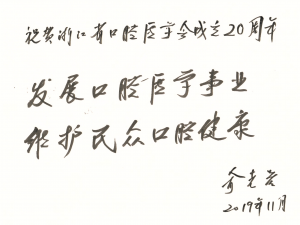 祝贺浙江省口腔医学会成立20周年
发展口腔医学事业
维护民众口腔健康
俞光岩
2019年11月